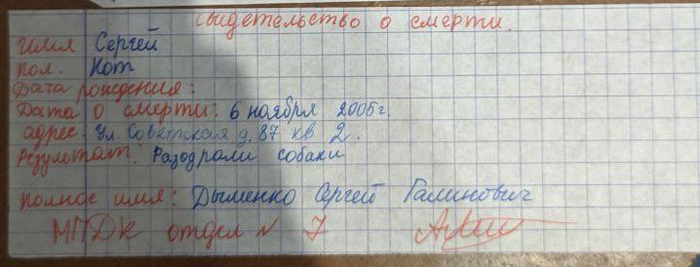 Свидетельство о смерти.
Имя Сергей
Пол. Кот
Дата рождения:
Дата о смерти: 6 ноября 2005г.
адрес: Ул. Советская д. 87 кв 2.
Результат: Разодрали собаки
Полное имя: Дыменко Сергей Галинович
МПДК отдел № 7